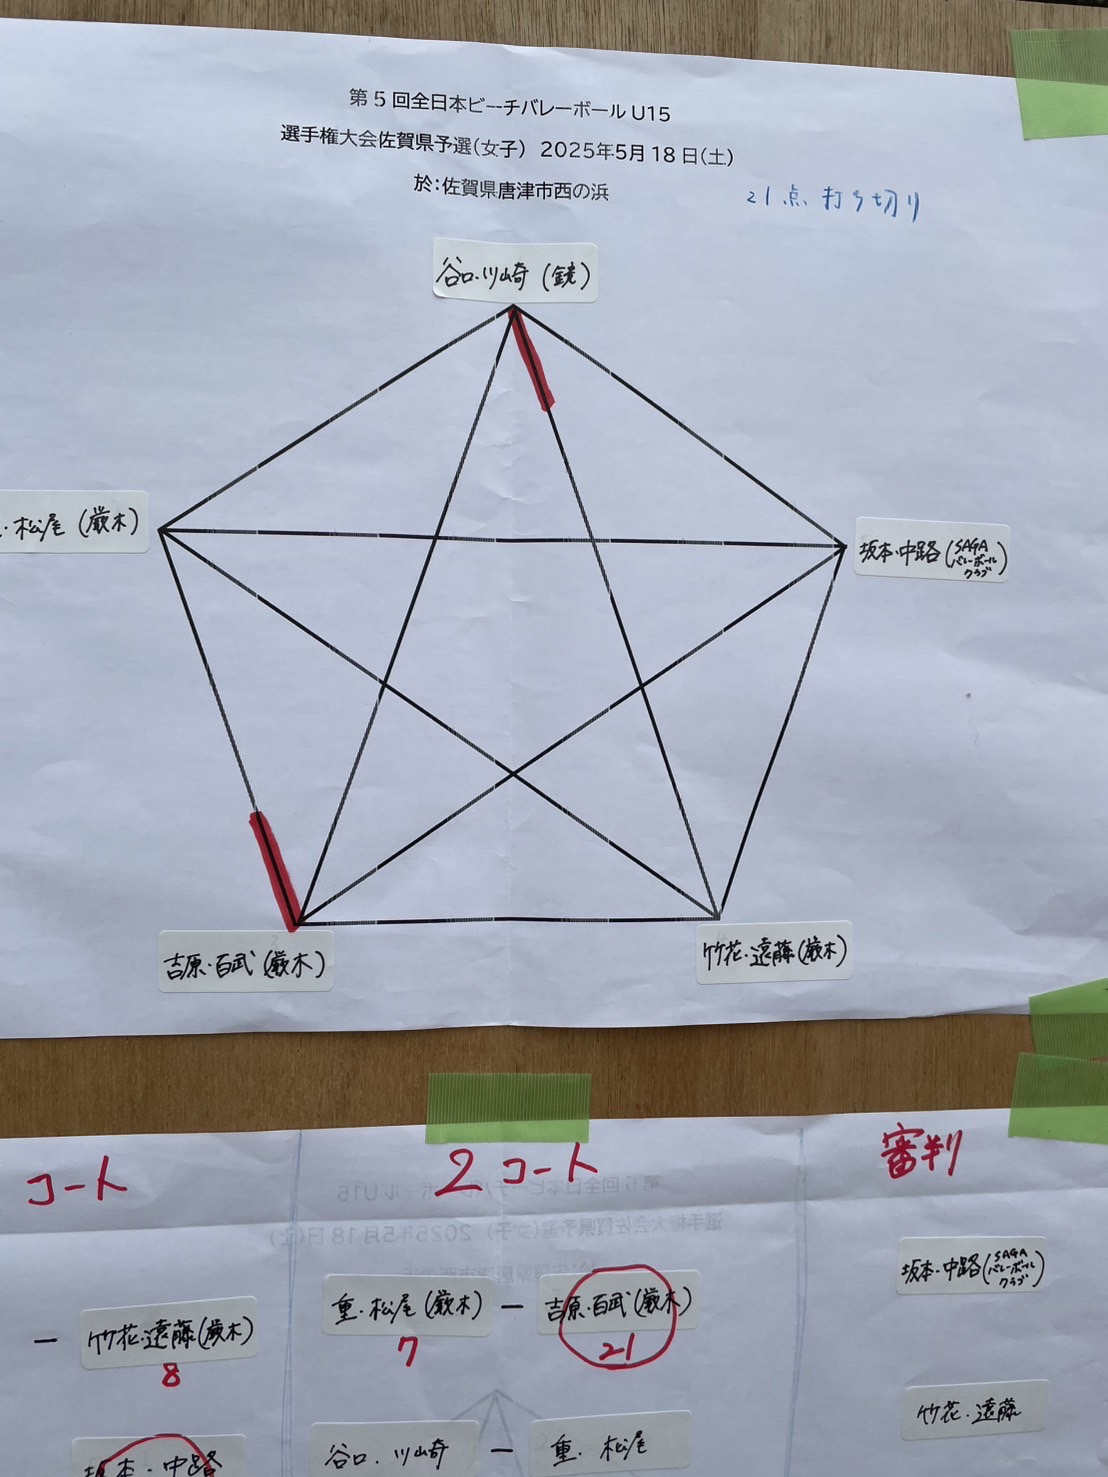 第5回全日本ビーチバレーボールU15
選手権大会佐賀県予選(女子) 2025年5月18日(土)
於:佐賀県唐津市西の浜
21点打ち切り
谷口・川崎(鏡)
・松尾(厳木)
坂本・中路(SAGA
バレーボール
クラブ)
吉原・百武(厳木)
竹花・遠藤(厳木)
コート
2コート
審判
坂本・中路(SAGA
バレーボール
クラブ)
- 竹花・遠藤(厳木)
8
重・松尾(厳木) - 吉原・百武(厳木)
7 21
竹花・遠藤
坂本・中路
谷口・川崎 - 重・松尾